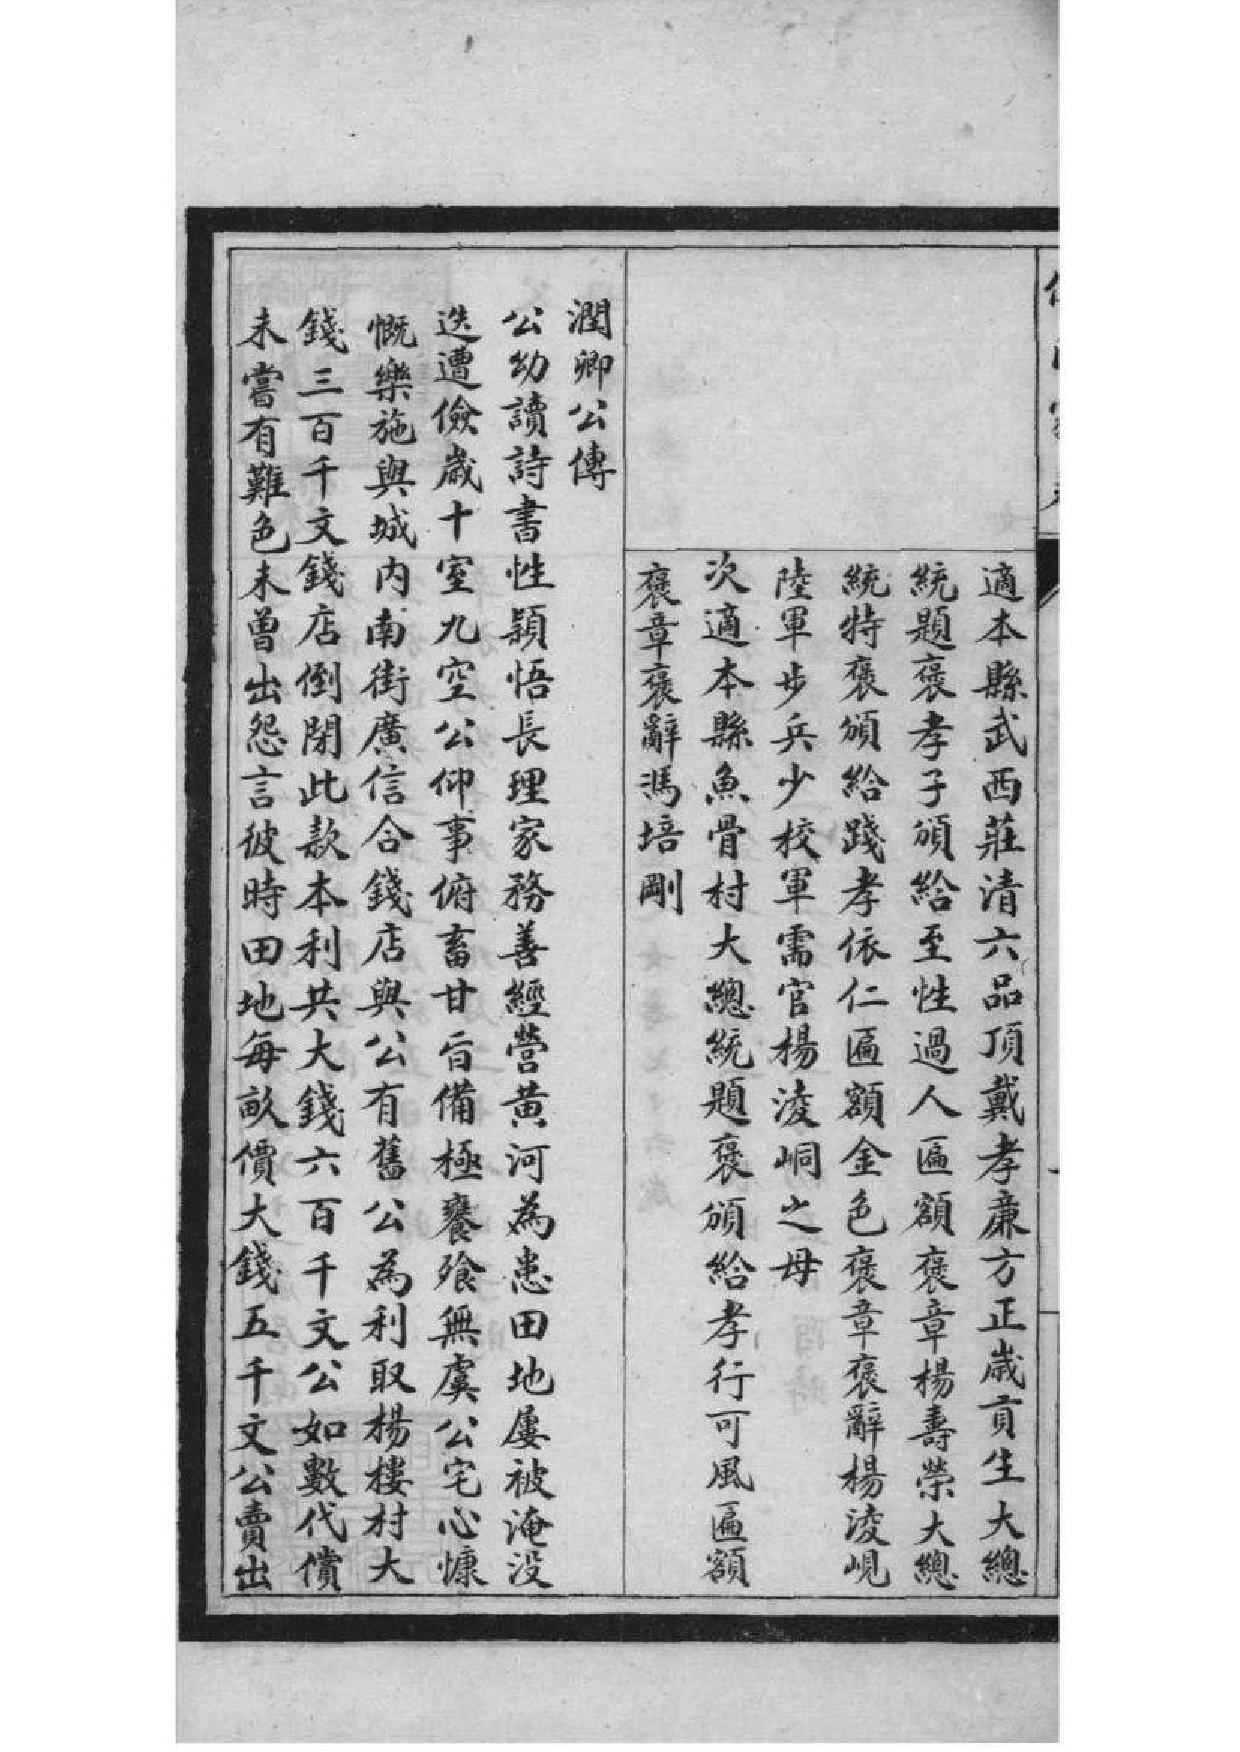 適本縣武西莊清六品頂戴孝廉方正歲貢生大總
統題褒孝子頒給至性過人匾額褒章楊壽榮大總
統特褒頒給踐孝依仁匾額金色褒章褒辭楊淩峴
陸軍步兵少校軍需官楊淩峒之母
次適本縣魚骨村大總統題褒頒給孝行可風匾額
褒章褒辭馮培剛
潤卿公傳
公幼讀詩書性穎悟長理家務善經營黃河為患田地屢被淹没
迭遭儉歲十室九空公仰事俯畜甘旨備極饔飱無虞公宅心慷
慨樂施與城内南街廣信合錢店與公有舊公為利取楊樓村大
錢三百千文錢店倒閉此款本利共大錢六百千文公如數代償
未嘗有難色未曾出怨言彼時田地每畝價大錢五千文公賣出